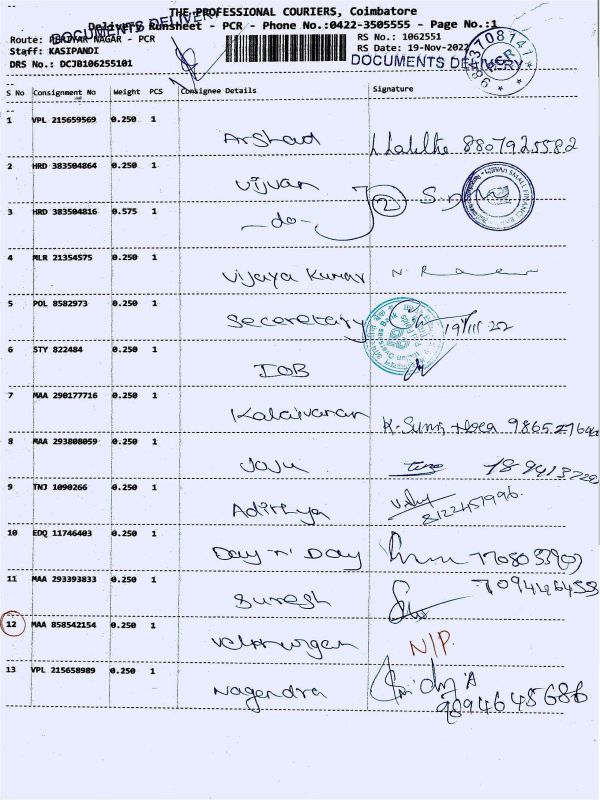 THE PROFESSIONAL COURIERS, Coimbatore
Delivery Runsheet - PCR - Phone No.:0422-3505555 - Page No.:1
DOCUMENTS DELIVERY
Route: PERIYAR NAGAR - PCR
RS No.: 1062551
Staff: KASIPANDI
RS Date: 19-Nov-2022
DRS No.: DCJB106255101
DOCUMENTS DELIVERY
PCR
S No Consignment No Weight PCS Consignee Details Signature
1 VPL 215659569 0.250 1
Arshad 8807925582
2 HRD 383504864 0.250 1
Ujjvan 2
3 HRD 383504816 0.575 1
-do-
4 MLR 21354575 0.250 1
Vijaya Kumar
5 POL 8582973 0.250 1
Seceretary 19/11/22
6 STY 822484 0.250 1
IOB
7 MAA 290177716 0.250 1
Kalaivanan
8 MAA 293808059 0.250 1
Joju
9 TNJ 1090266 0.250 1
Adithya 8122451996
10 EDQ 11746403 0.250 1
Day 'n' Day
11 MAA 293393833 0.250 1
Suresh 709446455
12 MAA 858542154 0.250 1
Velmurugan N/P.
13 VPL 215658989 0.250 1
Nagendra 9894645686